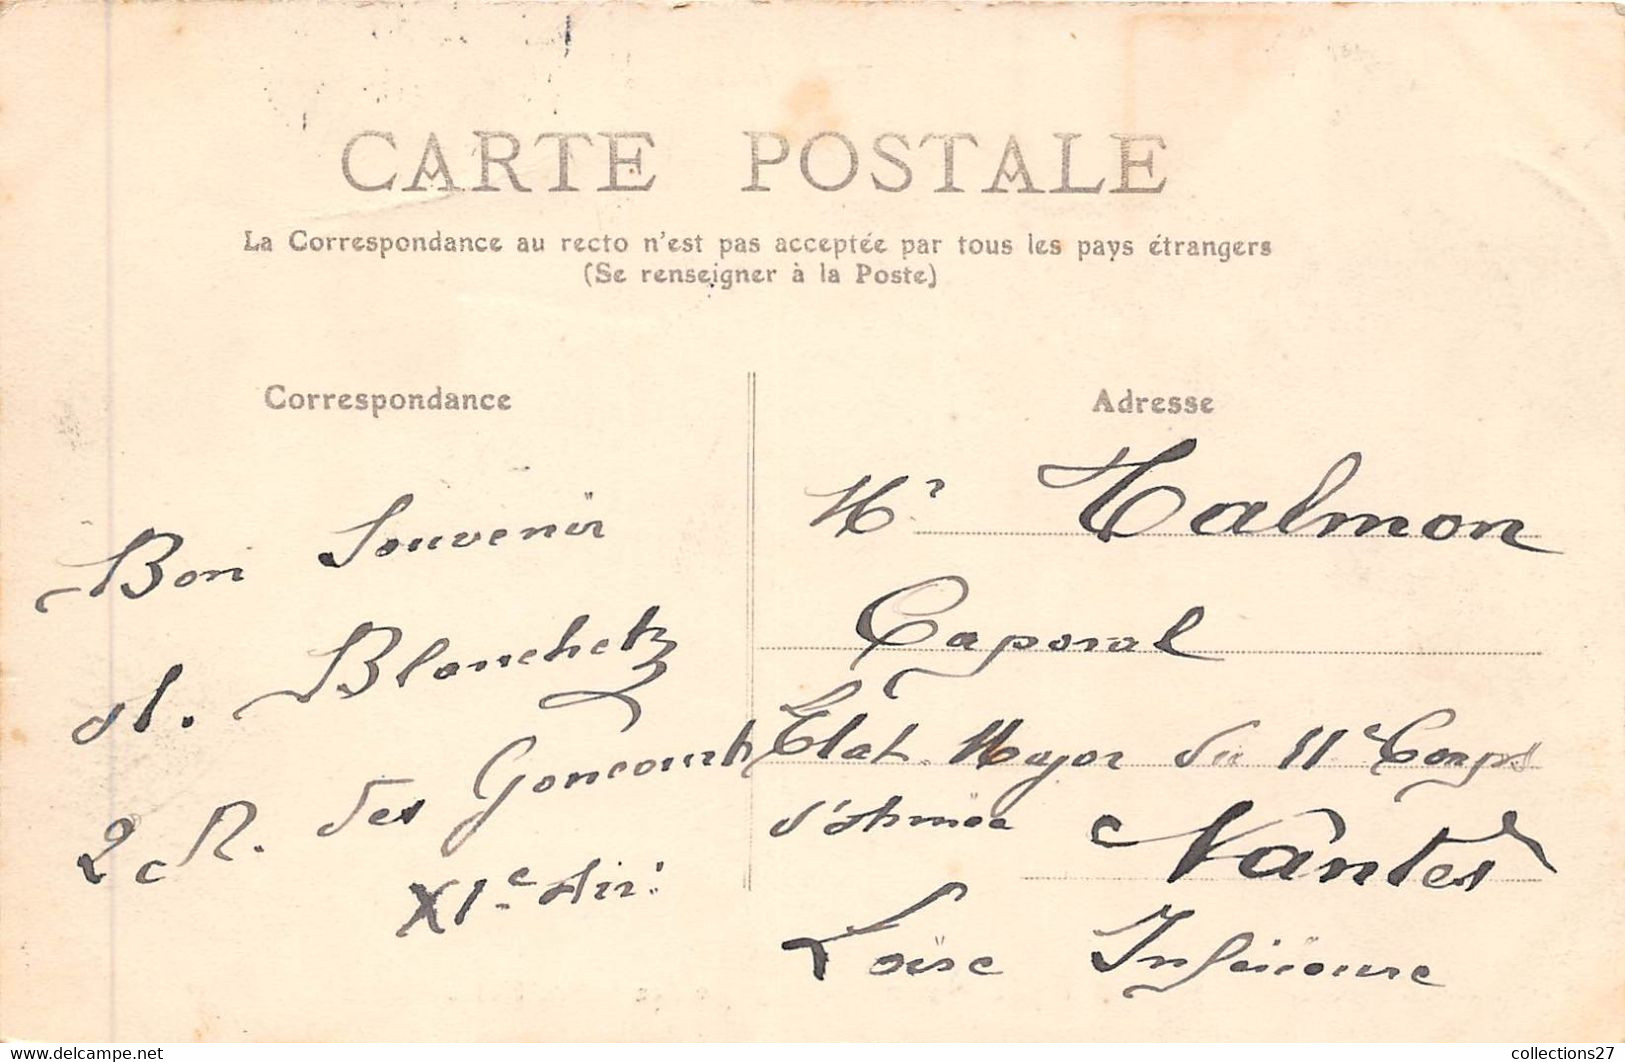 CARTE POSTALE
La Correspondance au recto n'est pas acceptée par tous les pays étrangers
(Se renseigner à la Poste)
Correspondance
Bon Souvenir
A. Blanchet
2 R. des Goncourt
XIe Arr:
Adresse
Mr Talmon
Caporal
Etat Major du 11e Corps
d'Armée Nantes
Loire Inférieure
www.delcampe.net
collections27